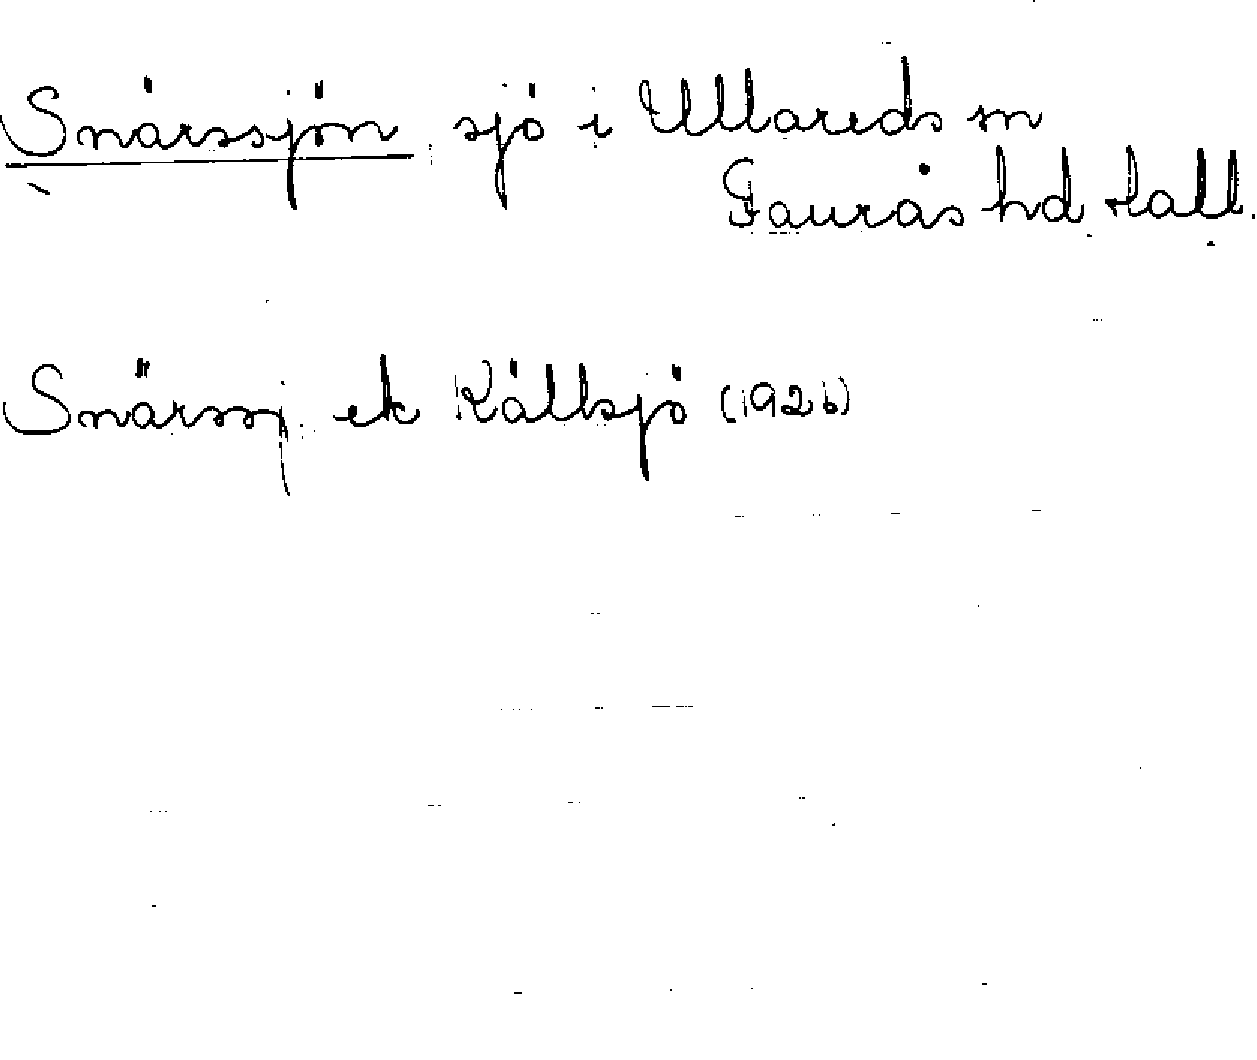 Snärssjön, sjö i Ullareds sn
Faurås hd Hall.
Snärssj. ek Källsjö (1926)